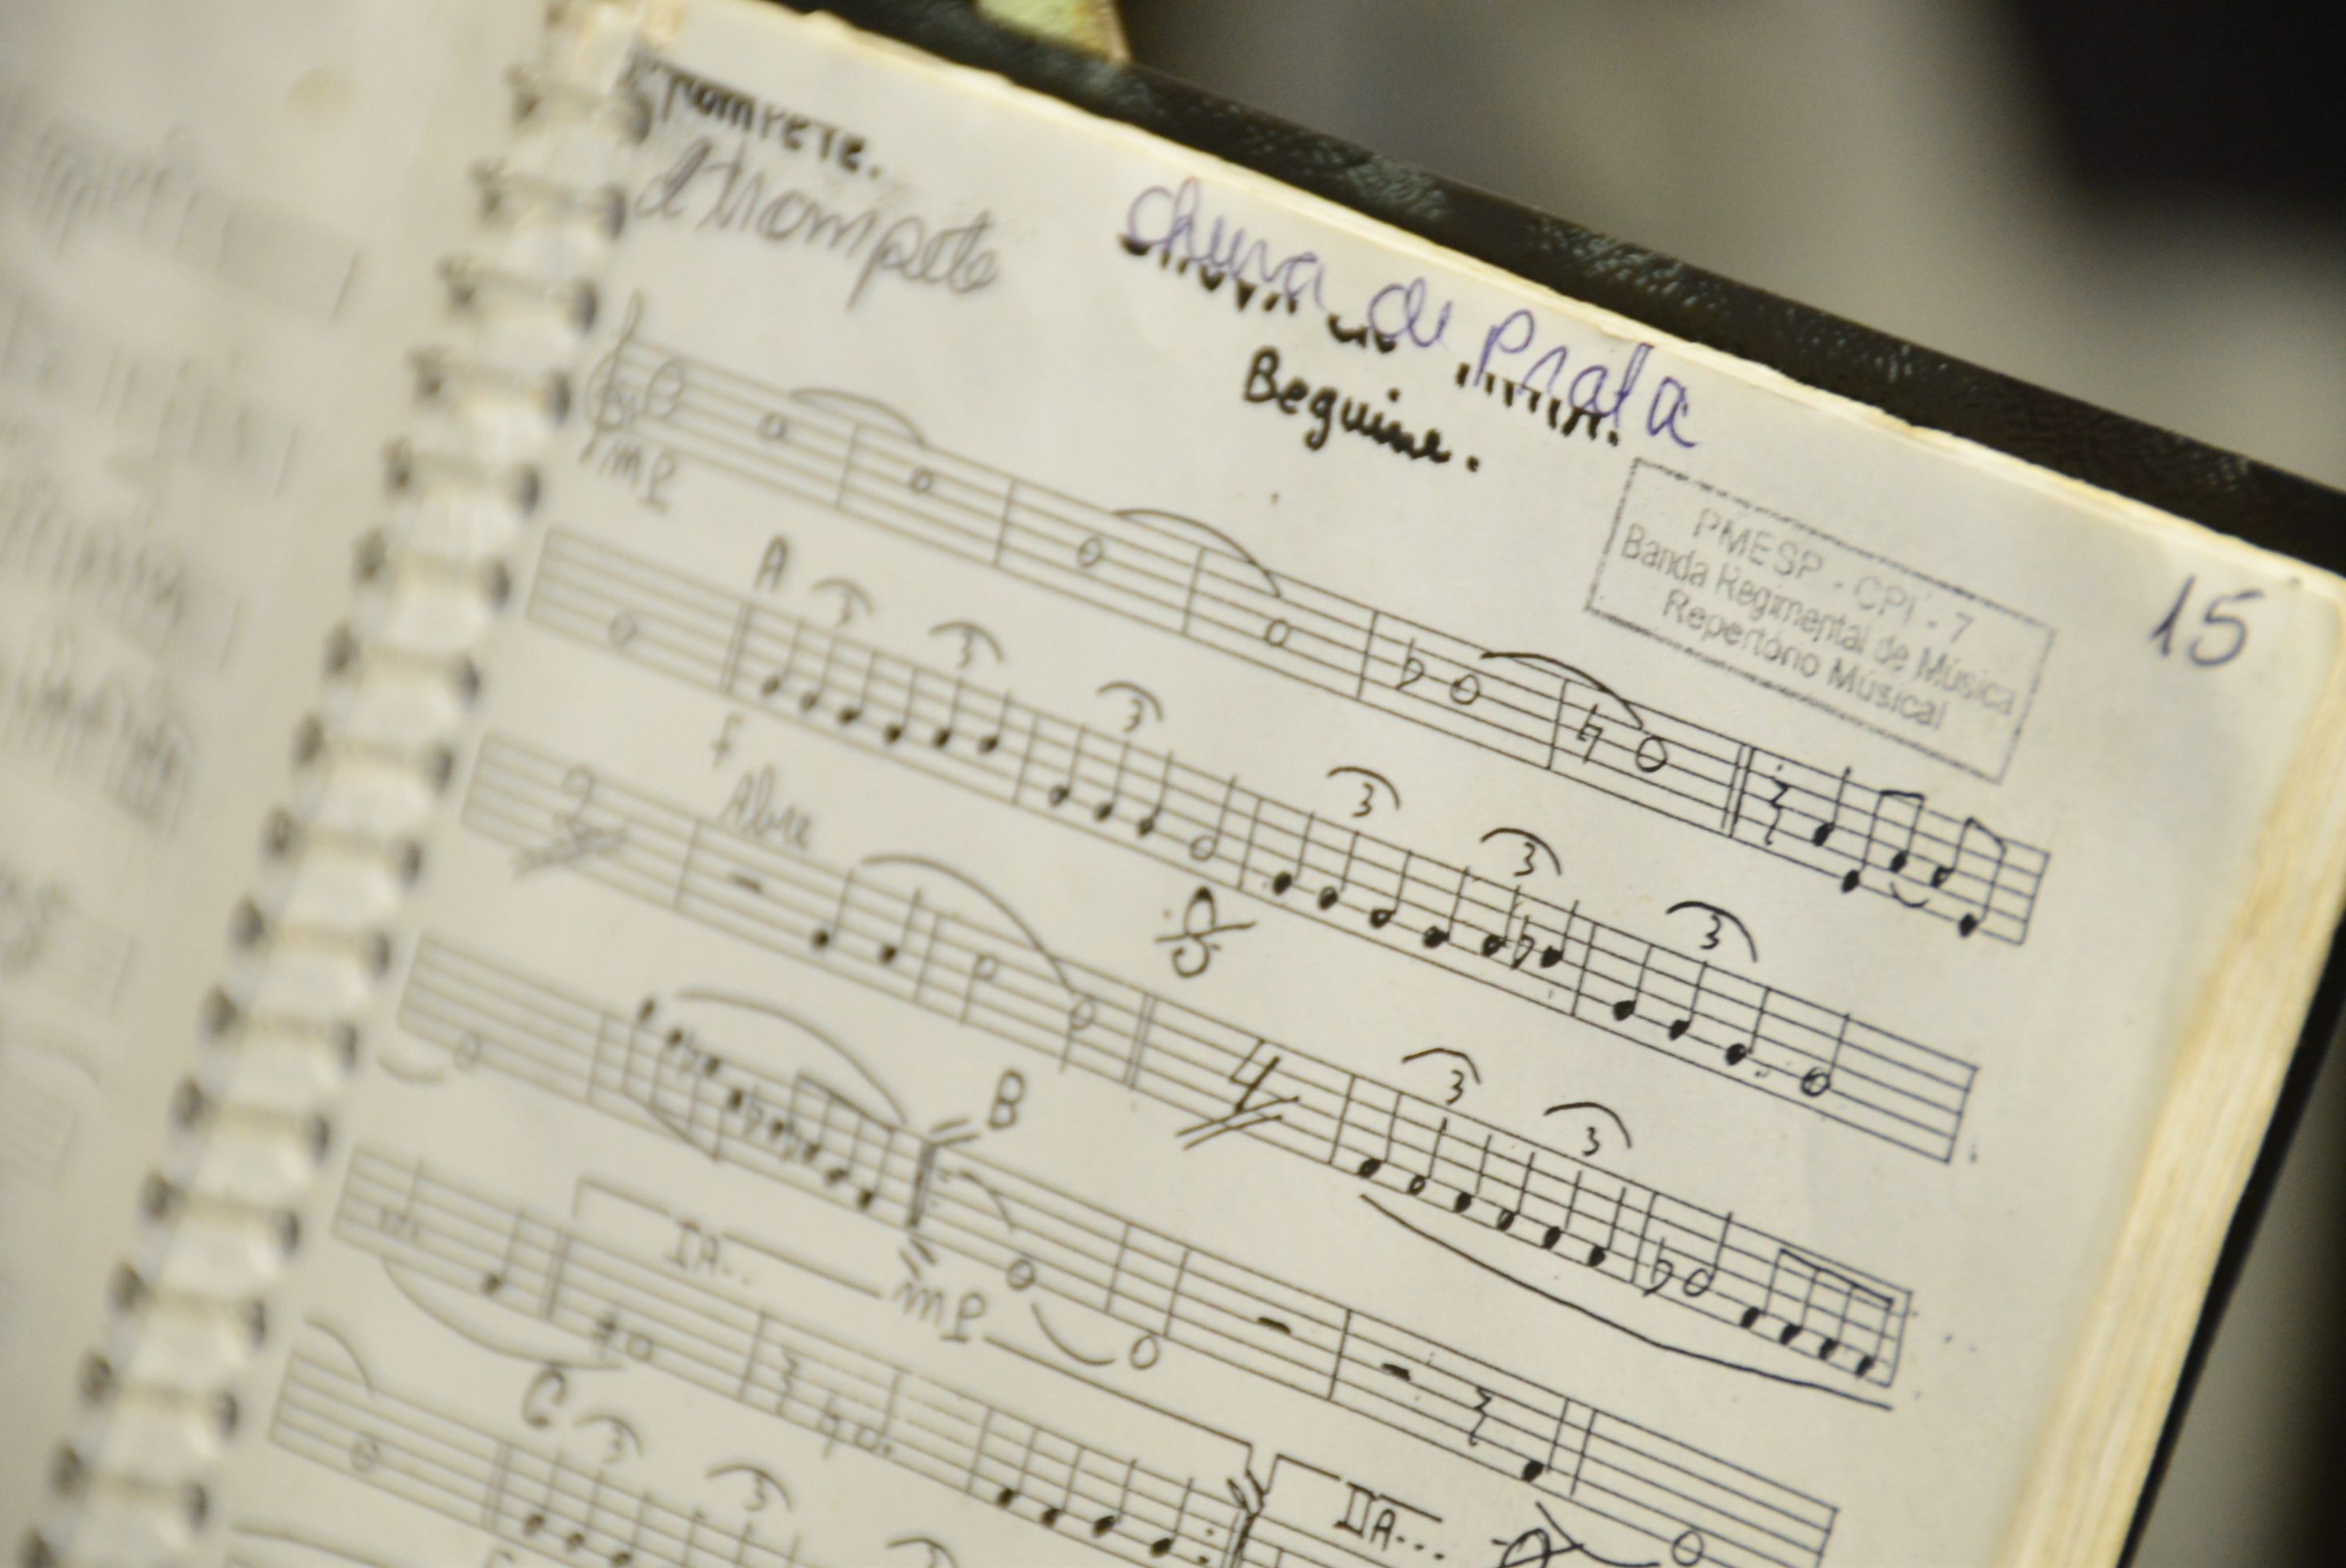 Trompete.
trompete
chuva de Prata
Beguine.
PMESP - CPI - 7
Banda Regimental de Música
Repertório Músical
15
mp
A
3 3 3 3 3 3
f
2
Abre
4
3 3
B
mp
IA..
IIA...
C
3 3